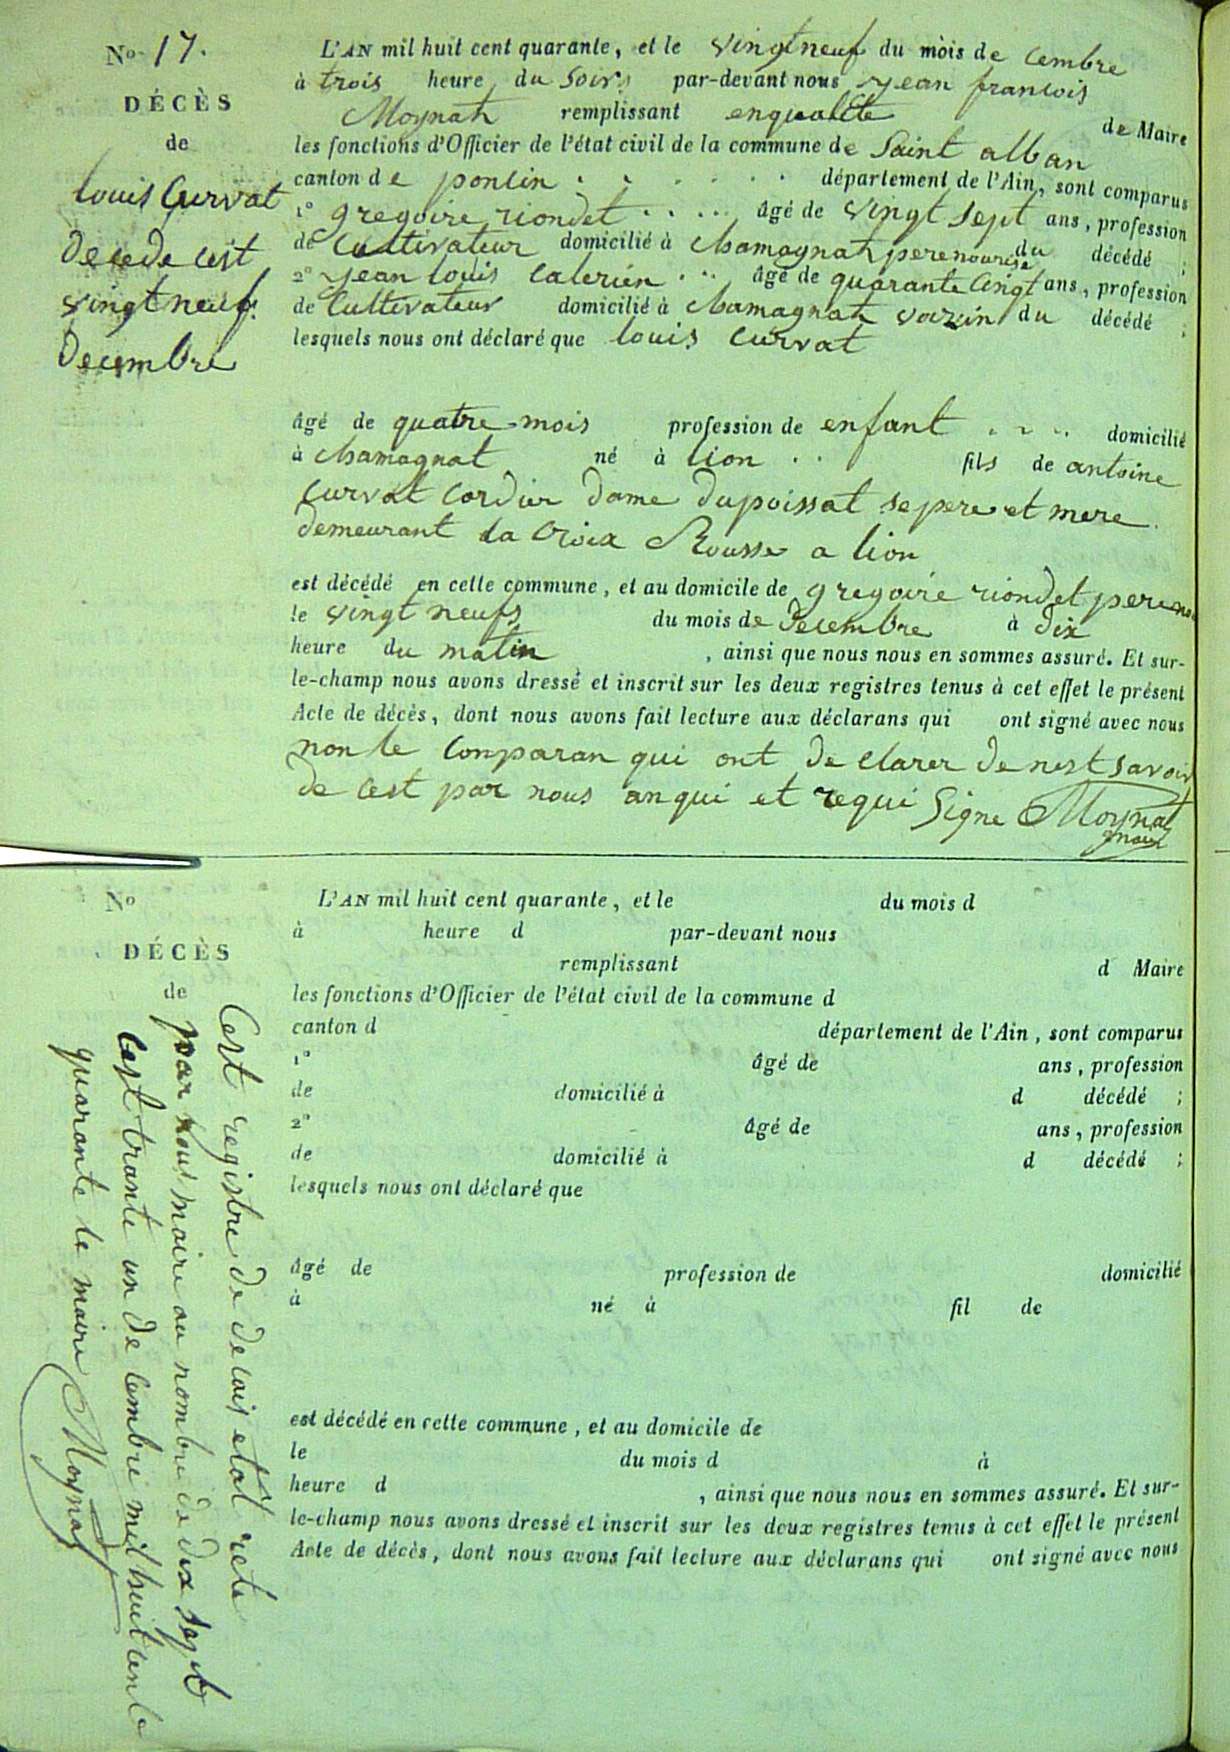 No 17.
DÉCÈS
de
louis Curvat
decede cest
vingt neuf
decembre
L'AN mil huit cent quarante, et le vingt neuf du mois de cembre
à trois heure du soirs par-devant nous jean francois
Moynat remplissant enqualite de Maire
les fonctions d'Officier de l'état civil de la commune de Saint alban
canton de poncin . . . . . . département de l'Ain, sont comparus
1º gregoire riondet . . . . . âgé de vingt sept ans, profession
de cultivateur domicilié à chamagnat perenourise du décédé ;
2º jean louis . . . âgé de quarante cinqt ans, profession
de Cultivateur domicilié à chamagnat vozin du décédé ;
lesquels nous ont déclaré que louis curvat
âgé de quatre mois profession de enfant . . . . domicilié
à chamagnat né à lion . . fils de antoine
curvat cordier dame dupoissat sepere et mere
demeurant la Croix Rousse a lion
est décédé en cette commune, et au domicile de gregoire riondet
le vingt neufs du mois de decembre à dix
heure du matin , ainsi que nous nous en sommes assuré. Et sur-
le-champ nous avons dressé et inscrit sur les deux registres tenus à cet effet le présent
Acte de décès, dont nous avons fait lecture aux déclarans qui ont signé avec nous
non le conparan qui ont de clarer de nest savoir
de cest par nous anqui et requi Signe Moynat
No
DÉCÈS
de
Cest registre de decais etat rete
par nous maire au nombre de dix sept
cest trante un de cembre mil huit cent
quarante le maire Moynat
L'AN mil huit cent quarante, et le du mois d
à heure d par-devant nous
remplissant d Maire
les fonctions d'Officier de l'état civil de la commune d
canton d département de l'Ain, sont comparus
1º âgé de ans, profession
de domicilié à d décédé ;
2º âgé de ans, profession
de domicilié à d décédé ;
lesquels nous ont déclaré que
âgé de profession de domicilié
à né à fil de
est décédé en cette commune, et au domicile de
le du mois d à
heure d , ainsi que nous nous en sommes assuré. Et sur-
le-champ nous avons dressé et inscrit sur les deux registres tenus à cet effet le présent
Acte de décès, dont nous avons fait lecture aux déclarans qui ont signé avec nous